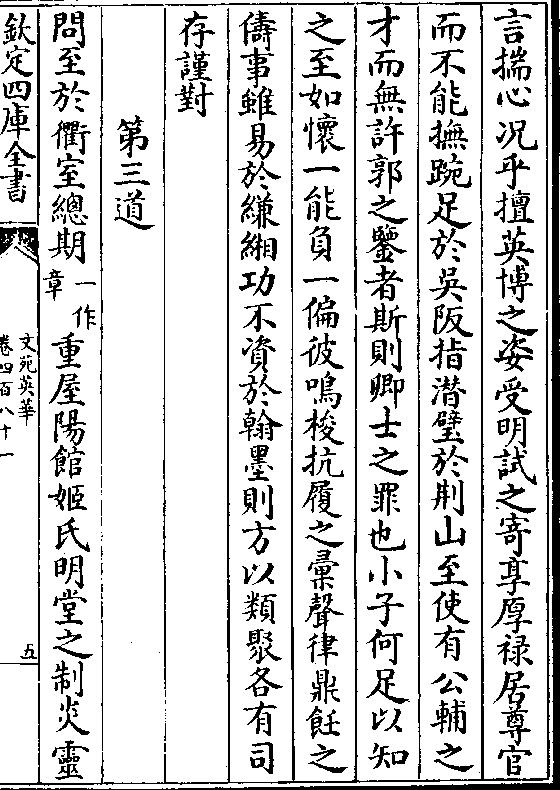 言揣心况乎擅英博之姿受明試之寄享厚禄居尊官
而不能撫踠足於吳阪指潜璧於荆山至使有公輔之
才而無許郭之鑒者斯則卿士之罪也小子何足以知
之至如懷一能負一偏彼鳴梭抗履之彙聲律鼎飪之
儔事雖易於縑緗功不資於翰墨則方以類聚各有司
存謹對
第三道
問至於衢室總期一作章重屋陽館姬氏明堂之制炎靈
欽定四庫全書
文苑英華
卷四百八十一
五